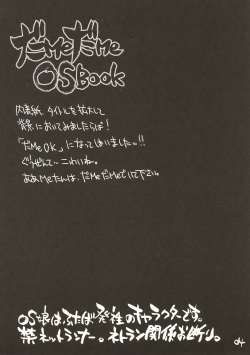 だMeだMe
OSBook
内表紙、タイトルを拡大して
背景においてみましたらば!
「だMeOK」になってしまいました。!!
ぐうぜんて…こわいね。
ああMeたんは、だMeだMeでいて下さい。
OS娘はふたば発祥のキャラクターです。
禁ネットランナー。ネトラン関係お断り。
04